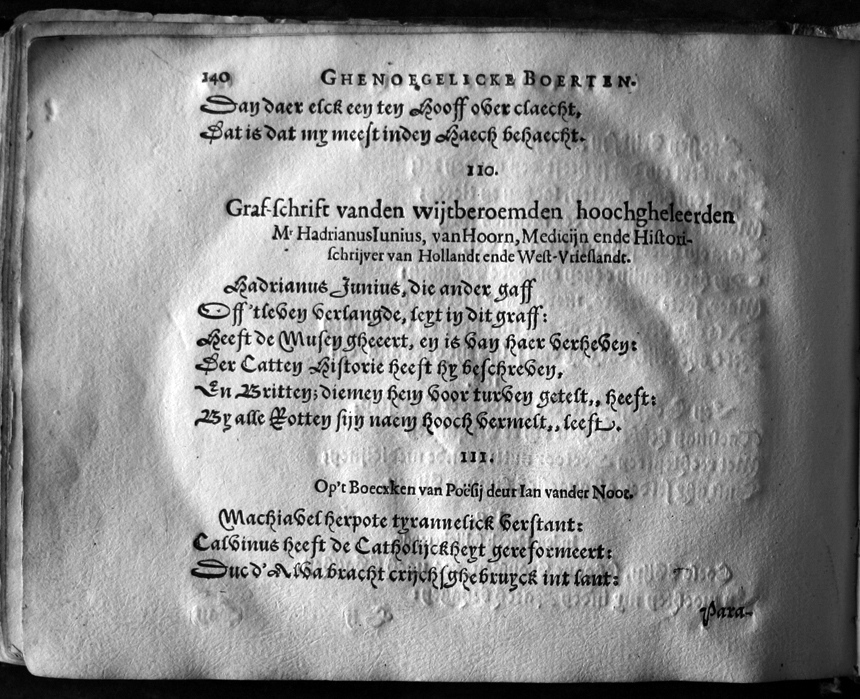 140 GHENOEGELICKE BOERTEN.
Dan daer elck een ten Hooff over claecht,
Dat is dat my meest inden Haech behaecht.
110.
Graf-schrift vanden wijtberoemden hoochgheleerden
Mr HadrianusIunius, vanHoorn, Medicijn ende Histori-
schrijver van Hollandt ende West-Vrieslandt.
Hadrianus Junius, die ander gaff
Off 'tleven verlangde, leyt in dit graff:
Heeft de Musen gheeert, en is van haer verheven:
Der Catten Historie heeft hy beschreven,
En Britten; diemen hem voor turven getelt,, heeft:
By alle Rotten sijn naem hooch vermelt,, leeft.
111.
Op't Boecxken van Poësij deur Ian vander Noot.
Machiavel herpote tyrannelick verstant:
Calvinus heeft de Catholijckheyt gereformeert:
Duc d'Alva bracht crijchsghebruyck int lant:
Para-